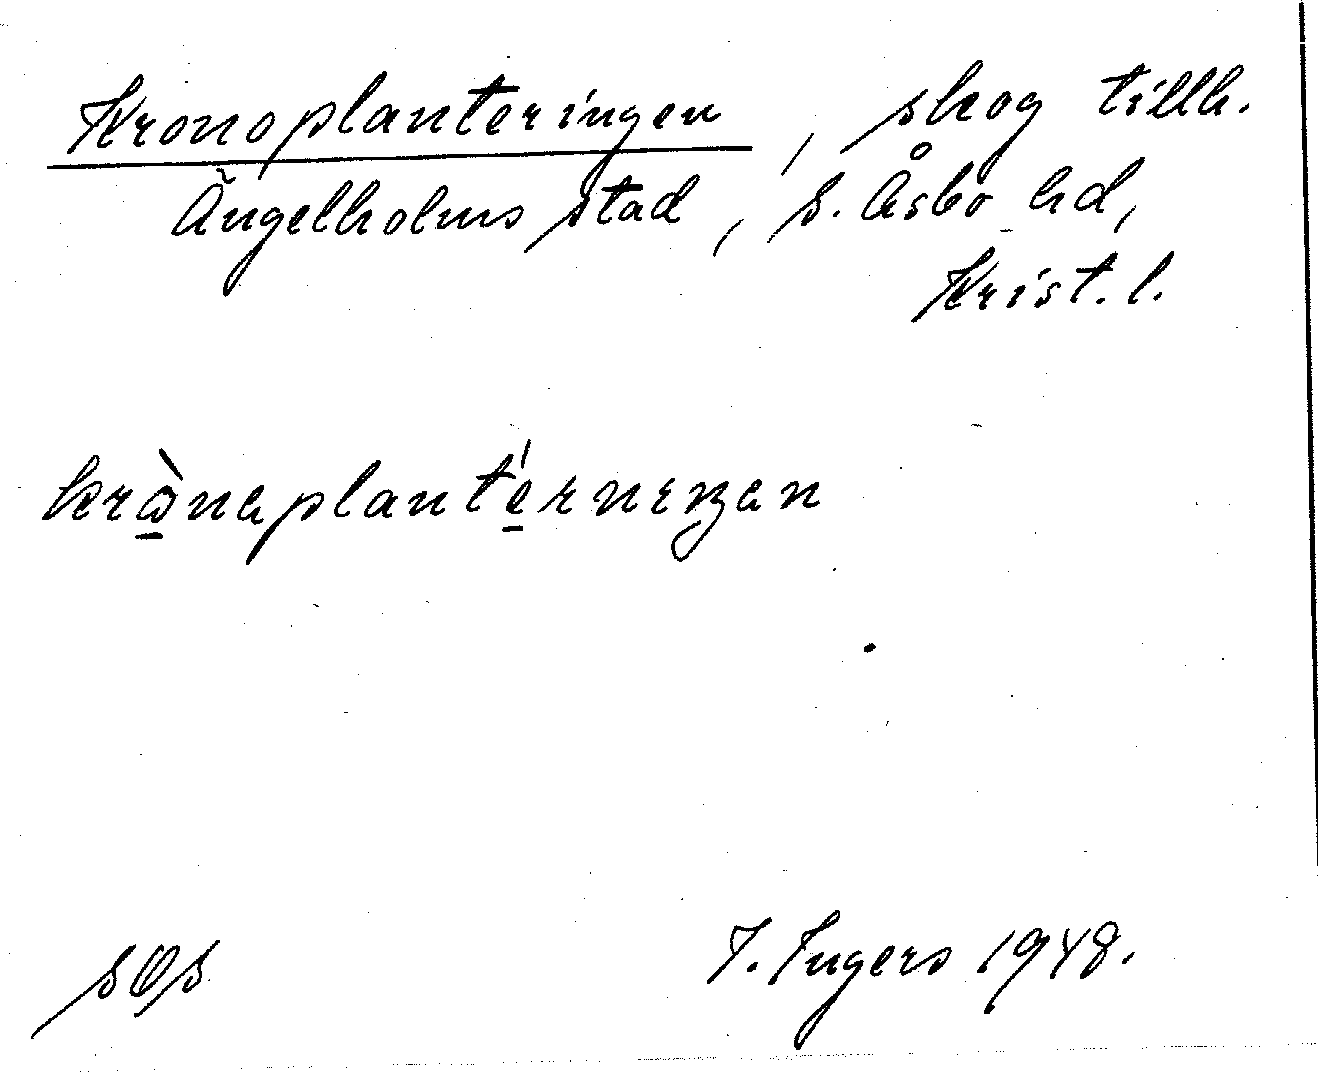 Kronoplanteringen, skog tillh.
Ängelholms stad, S. Åsbo hd,
Krist. l.
krὰnaplantérnıŋan
I. Ingers 1948.